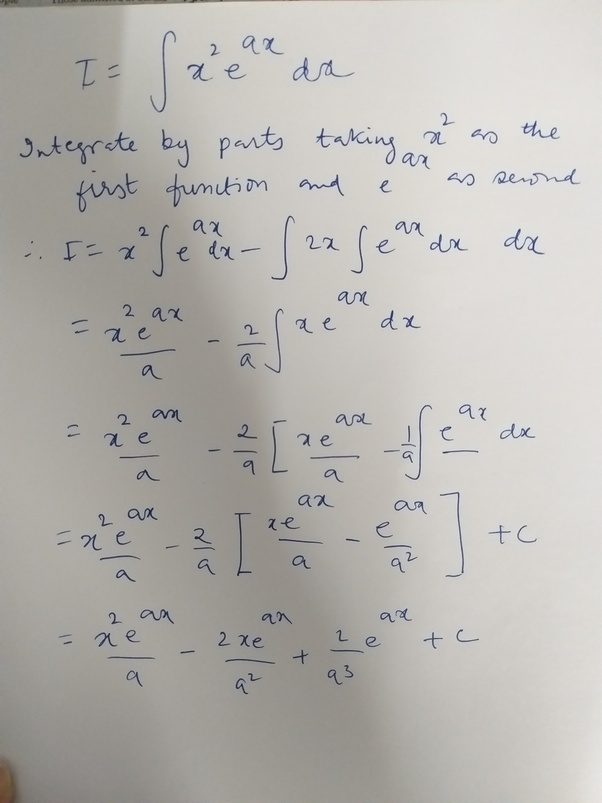 I = ∫ x² e^{ax} dx
Integrate by parts taking x² as the
first function and e^{ax} as second
∴ I = x² ∫ e^{ax} dx − ∫ 2x ∫ e^{ax} dx dx
= x² e^{ax}/a − 2/a ∫ x e^{ax} dx
= x² e^{ax}/a − 2/a [ x e^{ax}/a − 1/a ∫ e^{ax} dx
= x² e^{ax}/a − 2/a [ x e^{ax}/a − e^{ax}/a² ] + C
= x² e^{ax}/a − 2 x e^{ax}/a² + 2/a³ e^{ax} + C